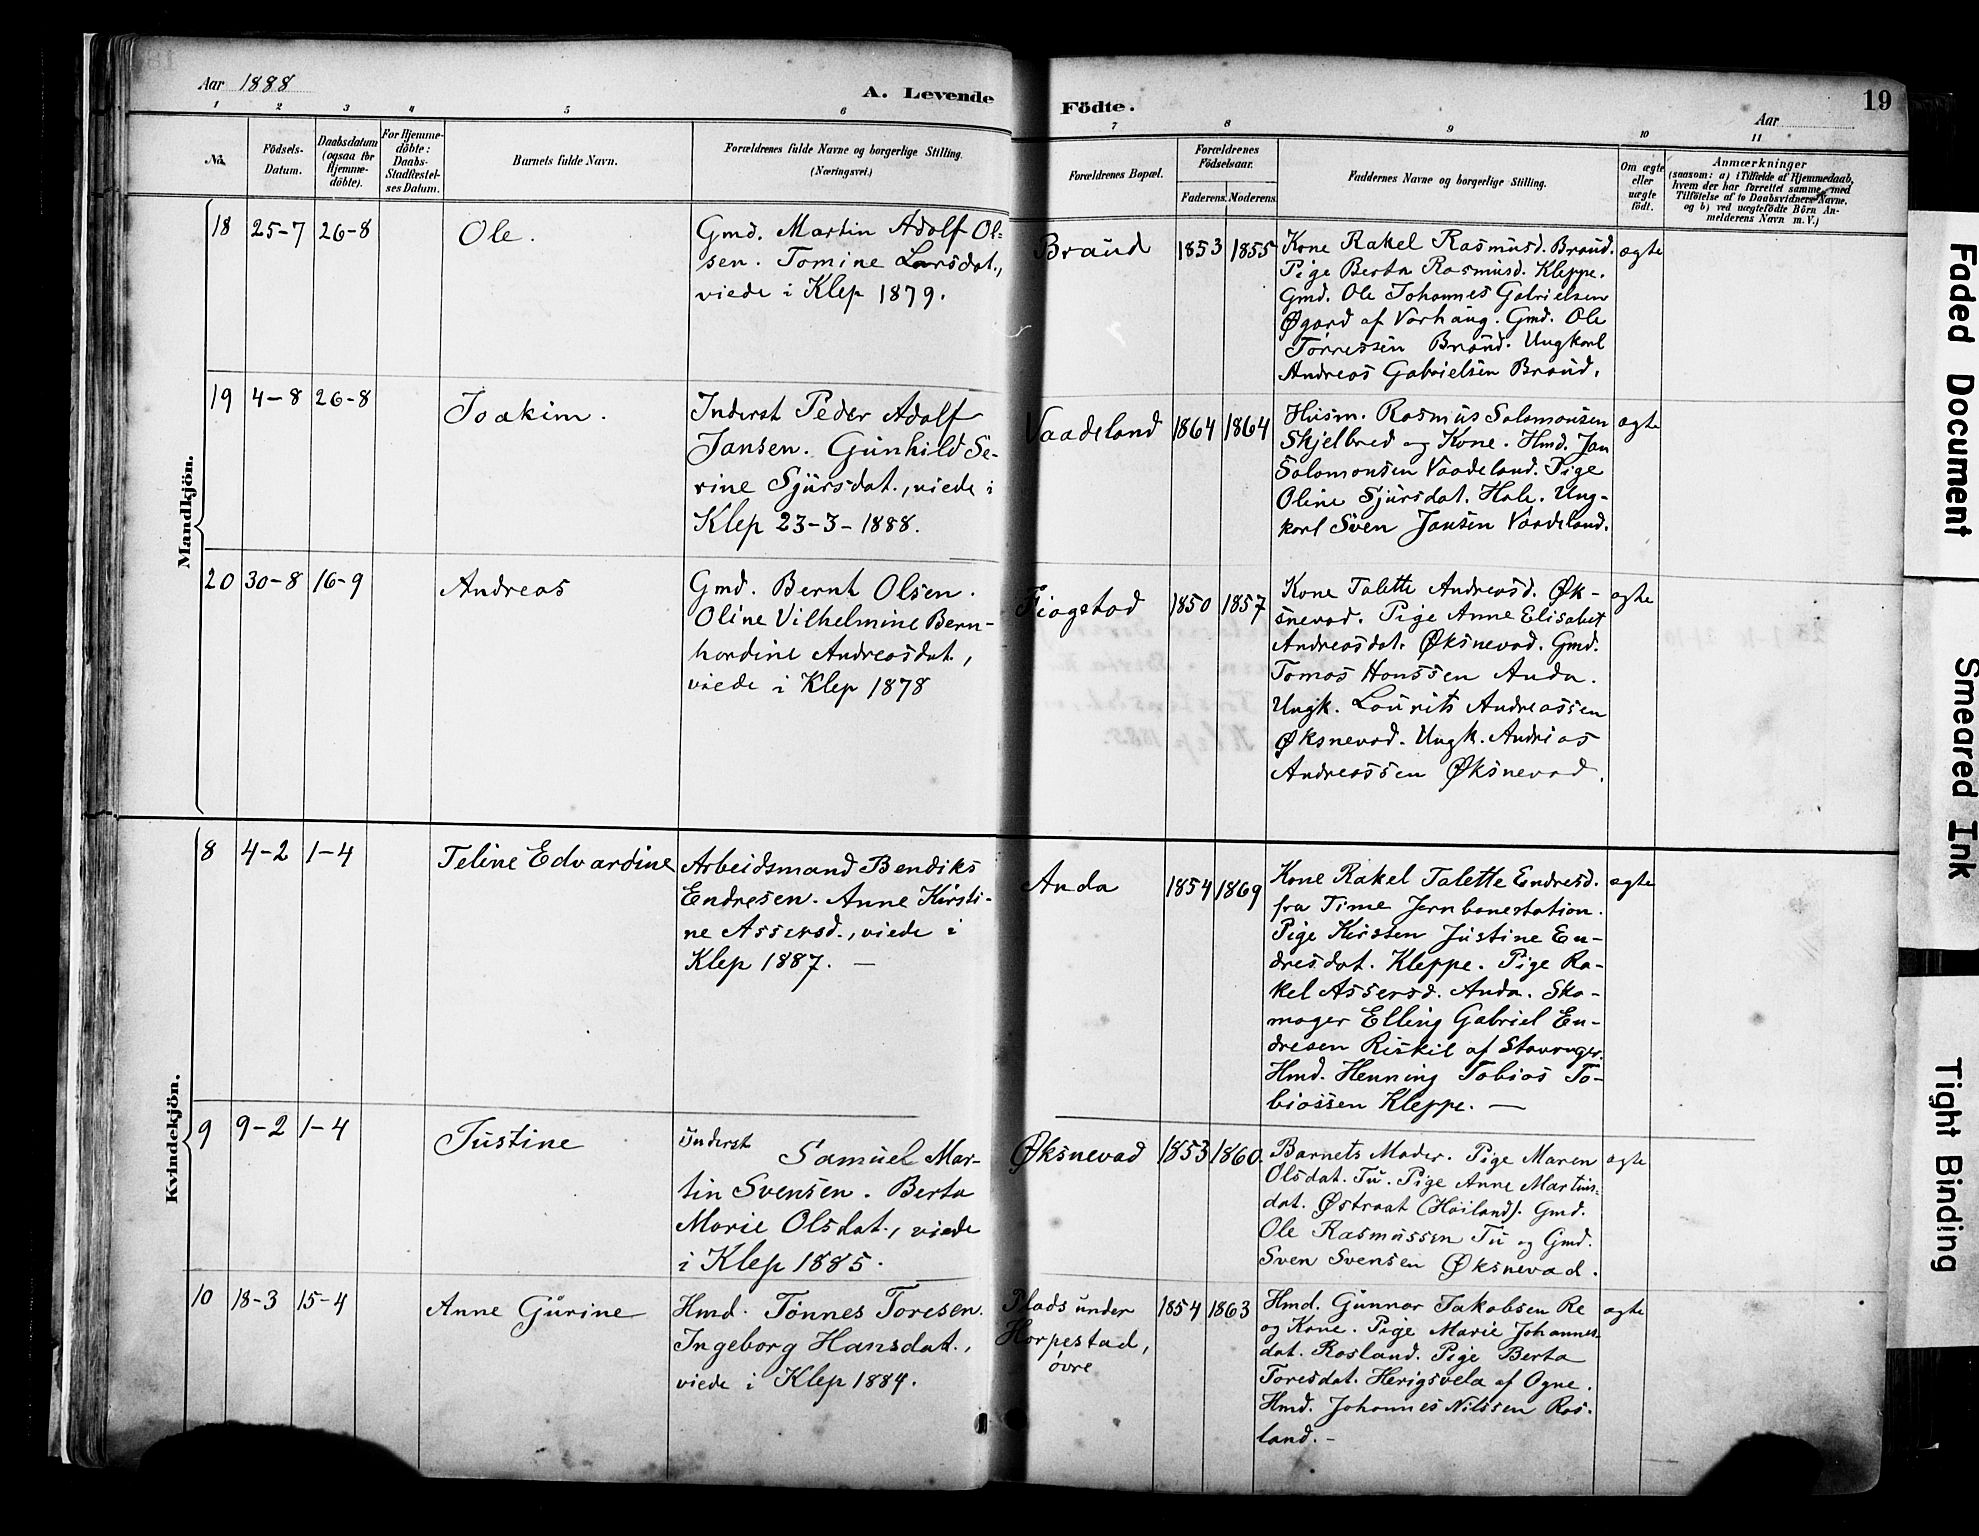 Aar 1888
A. Levende
Födte.
Aar
19
1 2 3 4 5 6 7 8 9 10 11
No.
Födsels-
Datum.
Daabsdatum
(ogsaa for
Hjemme-
döbte).
For Hjemme-
döbte:
Daabs-
Stadfæstel-
ses Datum.
Barnets fulde Navn.
Forældrenes fulde Navne og borgerlige Stilling.
(Næringsvei.)
Forældrenes Bopæl.
Forældrenes
Födselsaar.
Faderens. Moderens.
Faddernes Navne og borgerlige Stilling.
Om ægte
eller
uægte
födt.
Anmærkninger
(saasom: a) i Tilfælde af Hjemmedaab,
hvem der har forrettet samme, med
Tilföielse af to Daabsvidners Navne,
og b) ved uægtefödte Börn An-
melderens Navn m.V.)
Mandkjön.
18 25-7 26-8
Ole.
Gmd. Martin Adolf Ol-
sen. Tomine Larsdat.,
viede i Klep 1879.
Braud
1853 1855
Kone Rakel Rasmusd. Braud.
Pige Berta Rasmusd. Kleppe.
Gmd. Ole Johannes Gabrielsen
Øgard af Varhaug. Gmd. Ole
Torressen Braud. Ungkarl
Andreas Gabrielsen Braud.
ægte
19 4-8 26-8
Joakim.
Inderst Peder Adolf
Jansen. Gunhild Se-
rine Sjursdat., viede i
Klep 23-3-1888.
Vaadeland
1864 1864
Husm. Rasmus Salomonsen
Skjelbred og Kone. Hmd. Jan
Salomonsen Vaadeland. Pige
Oline Sjursdat. Hole. Ung-
karl Sven Jansen Vaadeland.
ægte
20 30-8 16-9
Andreas
Gmd. Bernt Olsen.
Oline Vilhelmine Bern-
hardine Andreasdat.,
viede i Klep 1878
Friagstad
1850 1857
Kone Talette Andreasd. Øk-
snevad. Pige Anne Elisabet
Andreasdat. Øksnevad. Gmd.
Tomas Hanssen Anda.
Ungk. Laurits Andreassen
Øksnevad. Ungk. Andrias
Andreassen Øksnevad.
ægte
Kvindekjön.
8 4-2 1-4
Teline Edvardine
Arbeidsmand Bendiks
Endresen. Anne Kirsti-
ne Assersd., viede i
Klep 1887. —
Anda
1854 1869
Kone Rakel Talette Endresd.
fra Time Jernbanestation.
Pige Kirsten Justine En-
dresdat. Kleppe. Pige Ra-
kel Assersd. Anda. Sko-
mager Elling Gabriel En-
dresen Riskil af Stavanger.
Hmd. Henning Tobias To-
biassen Kleppe. —
ægte
9 9-2 1-4
Justine
Inderst Samuel Mar-
tin Svensen. Berta
Marie Olsdat., viede
i Klep 1885.
Øksnevad
1853 1860.
Barnets Moder. Pige Maren
Olsdat. Tu. Pige Anne Martins-
dat. Østraat (Høiland). Gmd.
Ole Rasmussen Tu og Gmd.
Sven Svensen Øksnevad.
ægte
10 18-3 15-4
Anne Gurine
Hmd. Tønnes Toresen.
Ingeborg Hansdat.,
viede i Klep 1884.
Plads under
Horpestad,
øvre
1854 1863
Hmd. Gunnar Jakobsen Re
og Kone. Pige Marie Johannes-
dat. Rosland. Pige Berta
Toresdat. Herigsvela af Ogne.
Hmd. Johannes Nilssen Ros-
land. -
ægte
Faded Document
Smeared Ink
Tight Binding